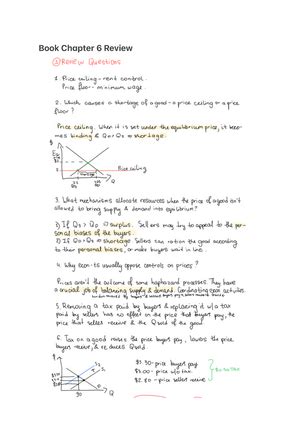 Book Chapter 6 Review
① Review Questions
1. Price ceiling - rent control.
Price floor - minimum wage.
2. Which causes a shortage of a good - a price ceiling or a price
floor?
Price ceiling. When it is set under the equilibrium price, it beco-
mes binding & QD > QS ⇒ shortage.
$
S
Price ceiling
shortage
D
Q
3. What mechanisms allocate resources when the price of a good isn't
allowed to bring supply & demand into equilibrium?
1) If QS > QD ⇒ surplus. Sellers may try to appeal to the per-
sonal biases of the buyers.
2) If QD > QS ⇒ shortage. Sellers can ration the good according
to their personal biases, or make buyers wait in line.
4. Why econ-sts usually oppose controls on prices?
Prices aren't the outcome of some haphazard processes. They have
a crucial job of balancing supply & demand. Coordinating econ activities.
5. Removing a tax paid by buyers & replacing it w/ a tax
paid by sellers has no effect on the price that buyers pay, the
price that sellers receive & the Q sold of the good.
6. Tax on a good raises the price buyers pay, lowers the price
sellers receive, & reduces Q sold.
$
S2
S1
90
Q
price buyers pay
$3.00 - price w/o tax
price sellers receive